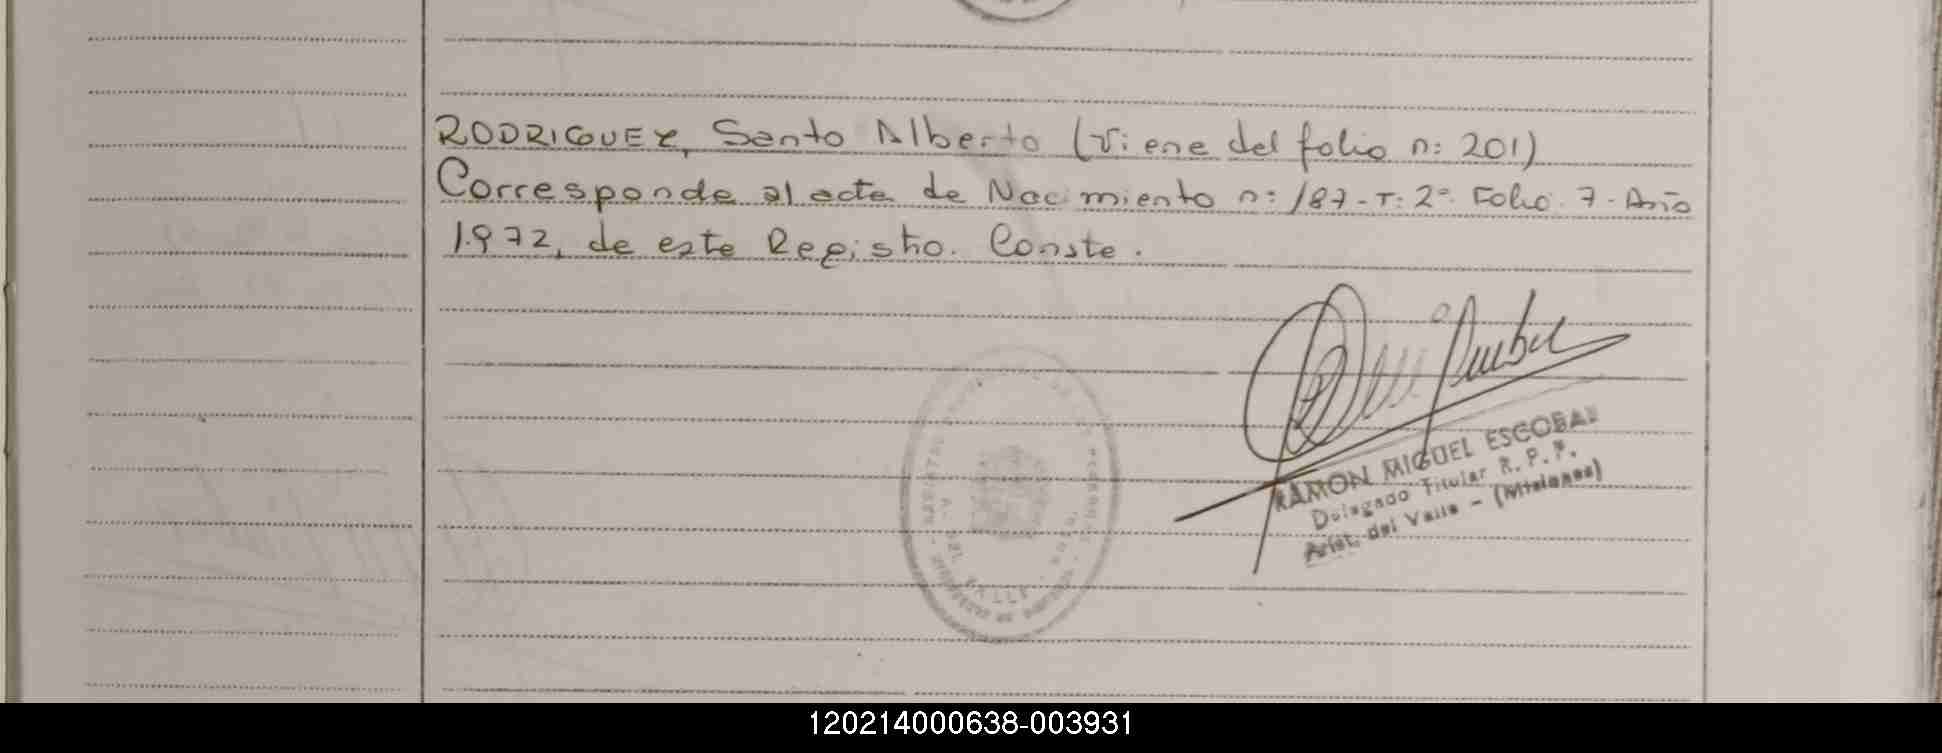 RODRIGUEZ, Santo Alberto (Viene del folio n: 201)
Corresponde al acta de Nacimiento n: 187 - T: 2º Folio: 7 - Año
1.972, de este Registro. Conste.
RAMON MIGUEL ESCOBAR
Delegado Titular R. P. P.
Arist. del Valle - (Misiones)
120214000638-003931